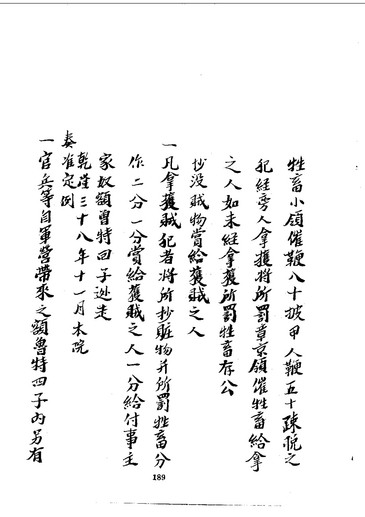 牲畜小領催鞭八十披甲人鞭五十疎脫之
犯經旁人拿獲將所罰章京領催牲畜給拿
之人如未經拿獲所罰牲畜存公
抄沒賊物賞給獲賊之人
一凡拿獲賊犯者將所抄賍物并所罰牲畜分
作二分一分賞給獲賊之人一分給付事主
家奴額魯特回子逃走
乾隆三十八年十一月本院
奏准定例
一官兵等自軍營帶來之額魯特回子內另有
189